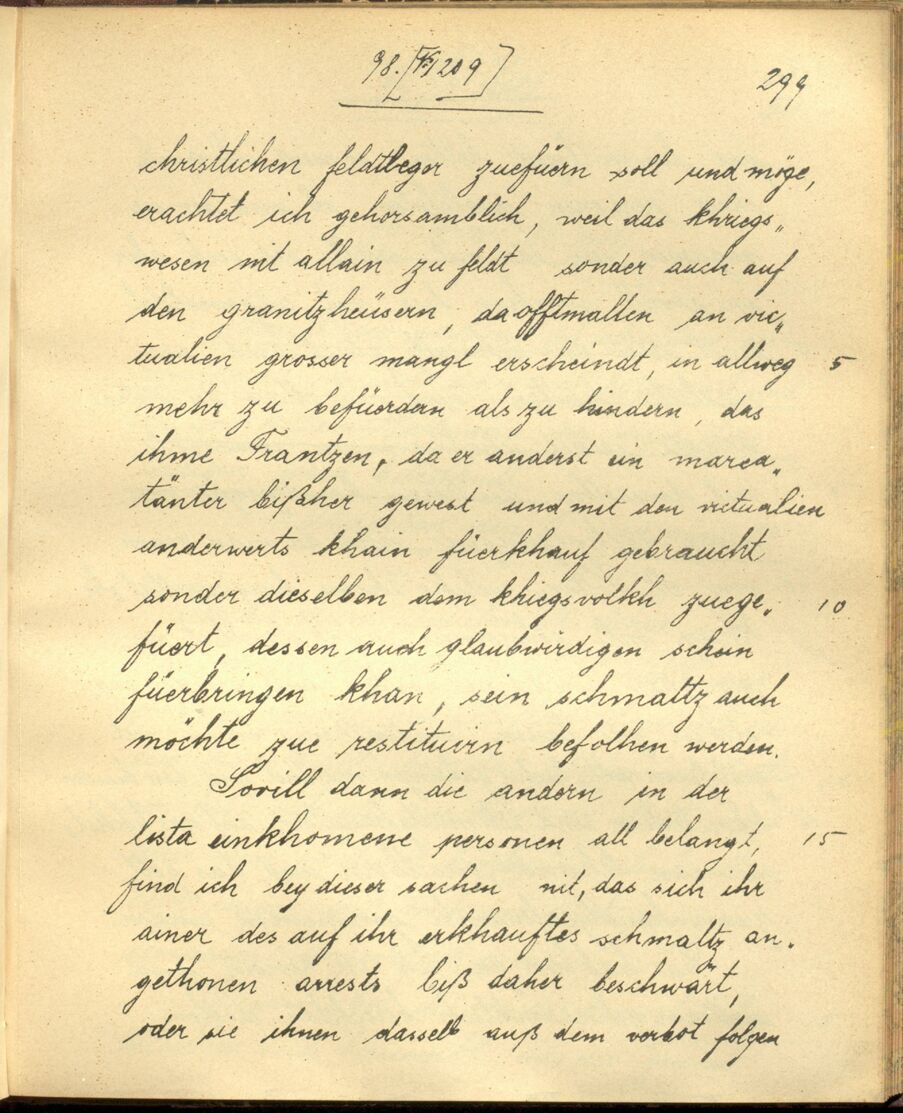 98. [K 209]
299
christlichen feldtleger zuefüern soll und möge,
erachtet ich gehorsamblich, weil das khriegs„
wesen nit allain zu feldt sonder auch auf
den granitzheüsern, da offtmallen an vic„
tualien grosser mangl erscheindt, in allweg 5
mehr zu befüerdern als zu hindern, das
ihme Frantzen, da er anderst ein marca„
tänter bißher gewest und mit den victualien
anderwerts khain füerkhauf gebraucht
sonder dieselben dem khriegsvolkh zuege„ 10
füert, dessen auch glaubwirdigen schein
füerbringen khan, sein schmaltz auch
möchte zue restituirn befolhen werden.
Sovill dann die andern in der
lista einkhomene personen all belangt, 15
find ich bey dieser sachen nit, das sich ihr
ainer des auf ihr erkhauftes schmaltz an„
gethonen arrests biß daher beschwärt,
oder sie ihnen dasselb auß dem verbot folgen